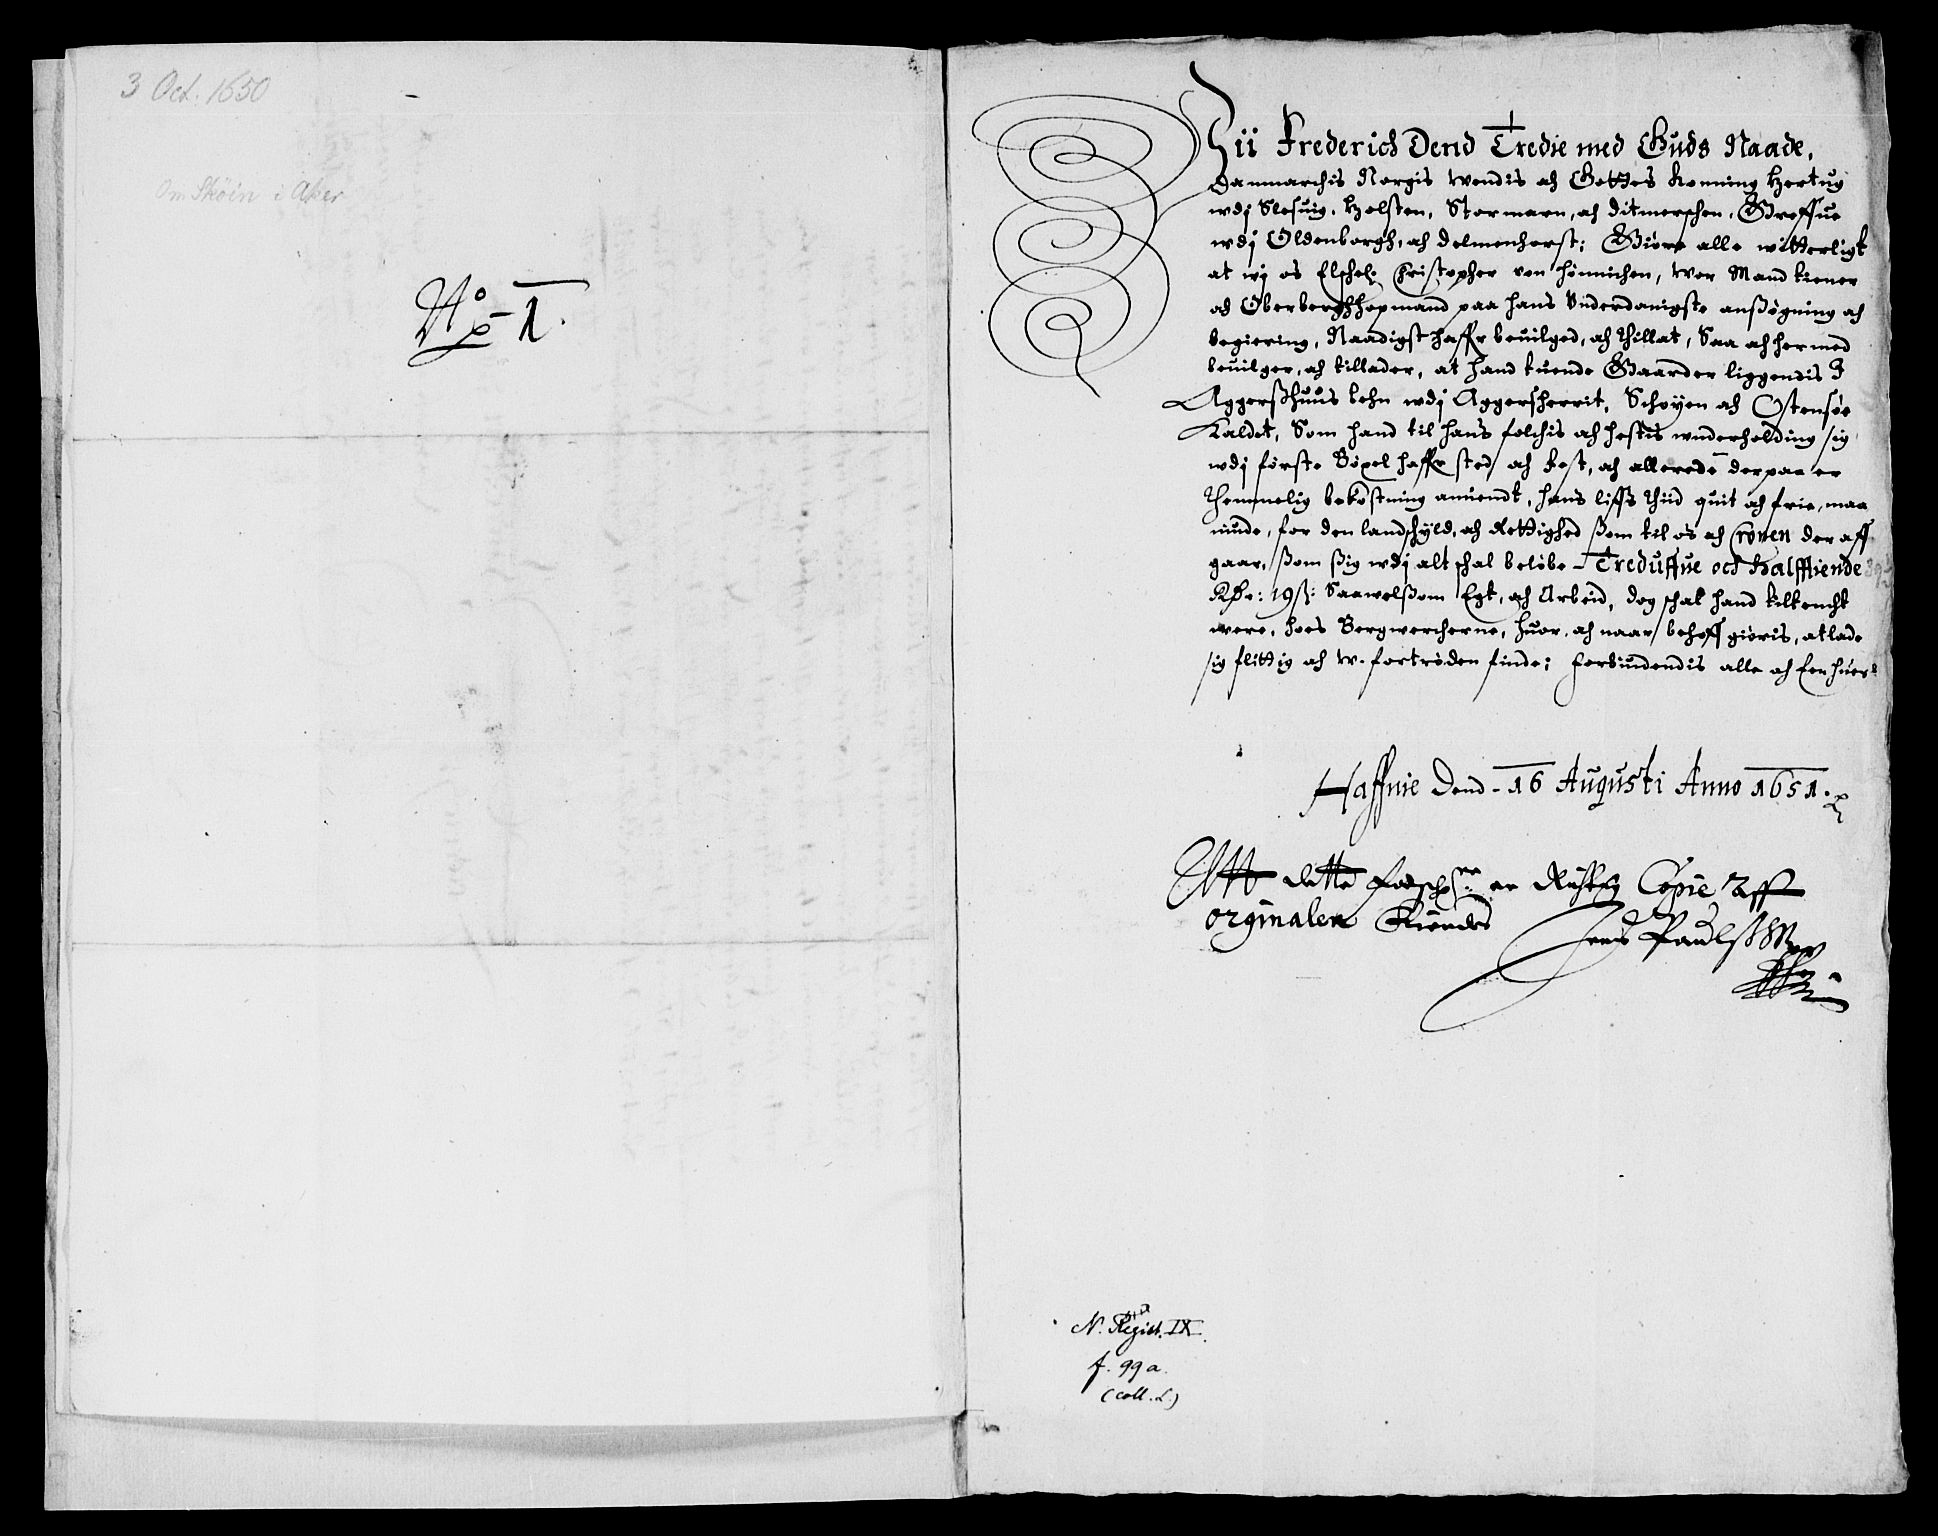 3 Oct. 1650
Om Skøin i Aker
No 1.
Vii Frederich Dend Tredie med Guds Naade,
Danmarchis Norgis Wendis och Gottes Konning Hertug
wdj Slesuig, Holsten, Stormarn, och Ditmerschen, Greffue
wdj Oldenborgh, och Delmenhorst; Giøre alle witterligt
at wj os Elschel: Christopher von Hønnichen, Wor Mand tiener
och Oberberghhopmand paa hans Vnderdanigste anßøgning och
begiering, Naadigst haffr beuilged, och thillat, Saa och hermed
beuilger, och tillader, at hand tuende Gaarder liggendis I
Aggerßhuus lehn wdj Aggersherrit, Schøyen och Ostensøe
Kaldet, Som hand til hans folchis och hestis wnderholding sig
wdj første Bøxel haffr sted och fest, och allerede derpaa er
themmelig bekostning anuendt, hans liffs thiid quit och frie, maa
niude, for den landschyld, och Rettighed ßom til os och Cronen der aff
gaar, ßom ßig wdj alt schal beløbe - Treduffue och Halfftiende
Rdr: 19 ß: Saawelßom Egt, och Arbeid, dog schal hand tiltencht
were, hoes Bergwercherne, huor, och naar behoff giøris, at lade
sig flittig och w-fortrøden finde; Forbiudendis alle och Een huer
Haffnie Dend - 16 Augusti Anno 1651.
Att dette er Rigtig Copie Aff
orginalen Kiendes
Jens Paulß
N. Regist. IX
f. 99 a.
(coll. L.)